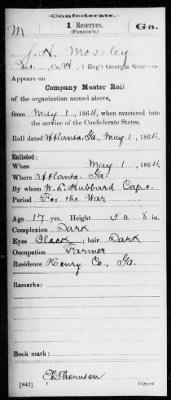 Confederate.
M 1 Reserves. Ga.
(Fannin's.)
J. H. Moseley
Co. H, 1 Reg't Georgia Reserves.
Appears on
Company Muster Roll
of the organization named above,
from May 1, 1864, when mustered into
the service of the Confederate States.
Roll dated Atlanta, Ga, May 1, 1864.
Enlisted:
When May 1, 1864.
Where Atlanta. Ga.
By whom W. L. Hubbard Capt.
Period For the War
Age 17 yrs. Height 5 ft 8 in.
Complexion Dark
Eyes Black; hair Dark
Occupation Farmer
Residence Henry Co., Ga.
Remarks:
Book mark:
(642) Copyist.